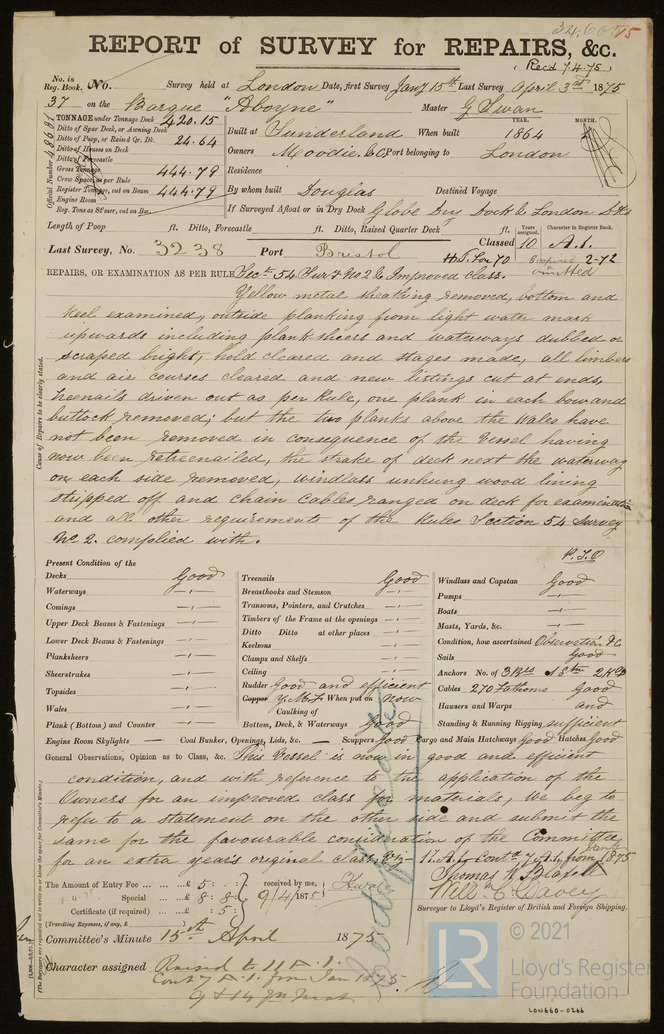 REPORT of SURVEY for REPAIRS, &c.
(Recd 7.4.75)
No. in Reg. Book. No. Survey held at London Date, first Survey Jany 15th Last Survey April 3rd 1875
37 on the Barque "Aboyne" Master G Swan
TONNAGE under Tonnage Deck 420.15
Ditto of Spar Deck, or Awning Deck
Ditto of Poop, or Raised Qr. Dk. 24.64
Ditto of Houses on Deck
Ditto of Forecastle
Gross Tonnage 444.79
Crew Space as per Rule
Register Tonnage, cut on Beam 444.79
Engine Room
Reg. Tons as St'mer, cut on Bm.
Official Number 48681
YEAR. MONTH.
Built at Sunderland When built 1864
Owners Moodie & Co Port belonging to London
Residence
By whom built Douglas Destined Voyage
If Surveyed Afloat or in Dry Dock Globe Dry Dock & London Dks
Length of Poop ft. Ditto, Forecastle ft. Ditto, Raised Quarter Deck ft. Years assigned. Character in Register Book.
Last Survey, No. 3238 Port Bristol Classed 10 A.1.
H.T. for 70 Expired 2-72
omitted
REPAIRS, OR EXAMINATION AS PER RULE, Sect. 54 Sur. No 2 & Improved class.
Yellow metal sheathing removed, bottom and
keel examined, outside planking from light water mark
upwards including planksheers and waterways dubbed or
scraped bright, hold cleared and stages made, all limbers
and air courses cleared and new listings cut at ends,
treenails driven out as per Rule, one plank in each bow and
buttock removed; but the two planks above the Wales have
not been removed in consequence of the Vessel having
now been retreenailed, the strake of deck next the waterway
on each side removed, windlass unhung wood lining
stripped off and chain cables ranged on deck for examination
and all other requirements of the Rules Section 54 Survey
No 2. complied with.
P.T.O
Cause of Repairs to be clearly stated.
Present Condition of the
Decks Good
Waterways
Comings
Upper Deck Beams & Fastenings
Lower Deck Beams & Fastenings
Planksheers
Sheerstrakes
Topsides
Wales
Plank (Bottom) and Counter
Treenails Good
Breasthooks and Stemson
Transoms, Pointers, and Crutches
Timbers of the Frame at the openings
Ditto Ditto at other places
Keelsons
Clamps and Shelfs
Ceiling
Rudder Good and efficient
Copper Y.M.F When put on Now
Caulking of
Bottom, Deck, & Waterways Good
Windlass and Capstan Good
Pumps
Boats
Masts, Yards, &c.
Condition, how ascertained Observation &c
Sails Good
Anchors No. of 3 Brs 1 Stm 2 Kgs
Cables 270 Fathoms Good
Hausers and Warps and
Standing & Running Rigging sufficient
Engine Room Skylights — Coal Bunker, Openings, Lids, &c. — Scuppers Good Cargo and Main Hatchways Good Hatches Good
General Observations, Opinion as to Class, &c. This Vessel is now in good and efficient
condition, and with reference to the application of the
Owners for an improved class for materials, We beg to
refer to a statement on the other side and submit the
same for the favourable consideration of the Committee
for an extra year's original class, viz— 11.A.1. Contd 7.A.1. from Jany 1875
The Amount of Entry Fee ... ...£ 5 : received by me,
Special ... ...£ 8 : 8 : 9/4/1875
Certificate (if required) ... ...£ : 5 :
(Travelling Expenses, if any, £ )
Surveyor to Lloyd's Register of British and Foreign Shipping.
Committee's Minute 15th April 1875
Character assigned Raised to 11 A.1.
Contd 7 A.1. from Jan 1875
© 2021
LR
Lloyd's Register
Foundation
LON660-0266